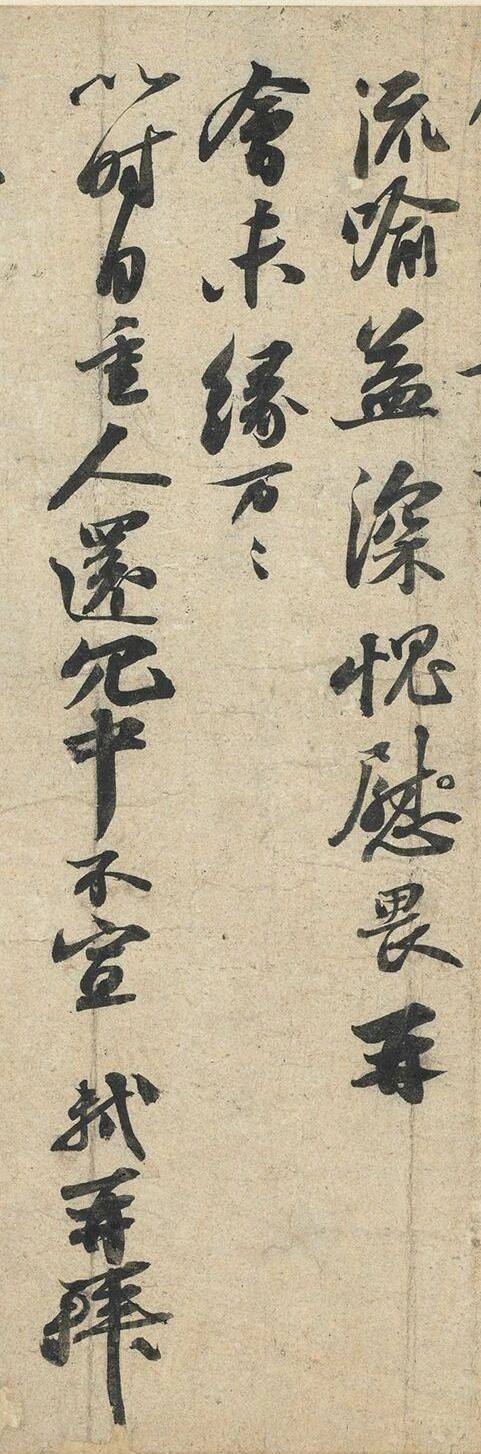 流喻益深愧慰畏再
會未緣万〻
以时自重人還冗中不宣 軾再拜